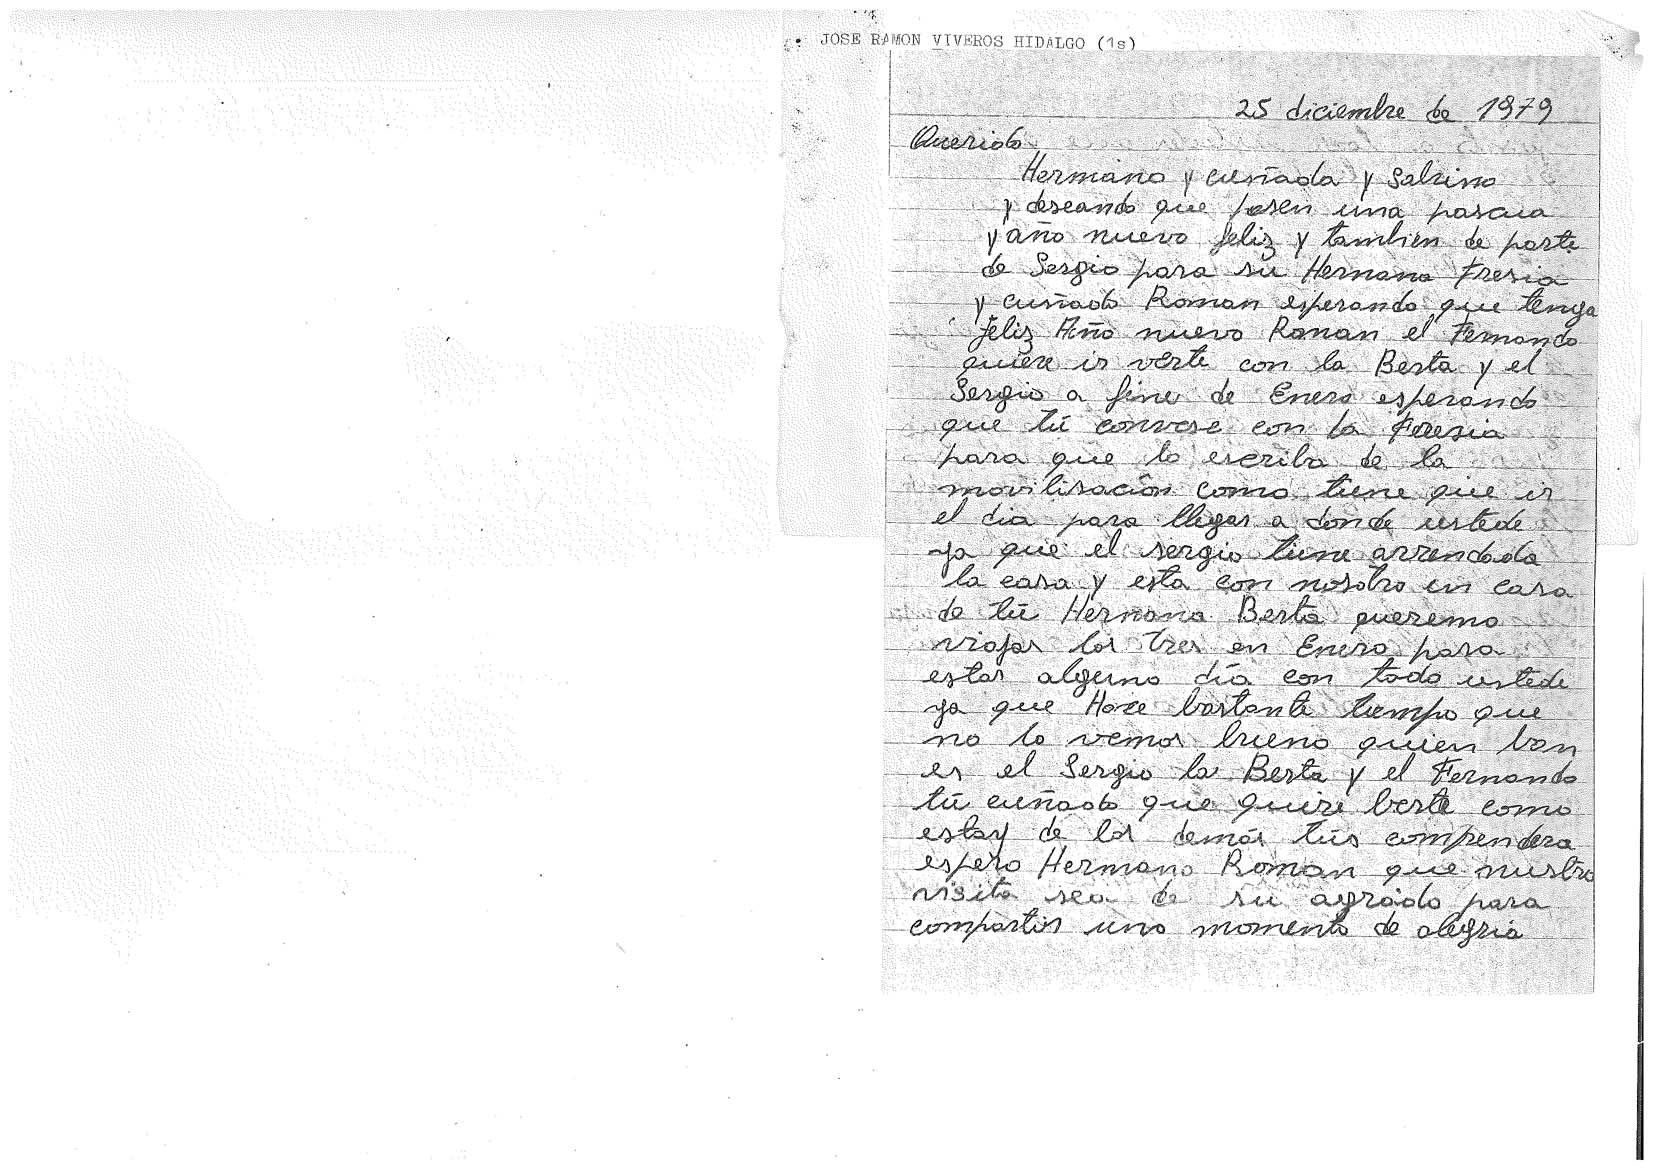 JOSE RAMON VIVEROS HIDALGO (1s)
25 diciembre de 1979
Querido
Hermano y cuñada y Sobrino
y deseando que pasen una pascua
y año nuevo feliz y tambien de parte
de Sergio para su Hermana Fresia
y cuñado Roman esperando que tenga
feliz Año nuevo Roman el Fernando
quiere ir verte con la Berta y el
Sergio a fine de Enero esperando
que tú converse con la Fresia
para que lo escriba de la
movilisación como tiene que ir
el dia para llegar a donde ustede
ya que el sergio tiene arrendada
la casa y esta con nosotro en casa
de tú Hermana Berta queremo
viajar los tres en Enero para
estar alguno día con todo ustede
ya que Hace bastante tiempo que
no lo vemos bueno quien ban
es el Sergio la Berta y el Fernando
tú cuñado que quire berte como
estay de los demás tús comprendera
espero Hermano Roman que nustra
visita sea de su agrado para
compartir uno momento de alegria